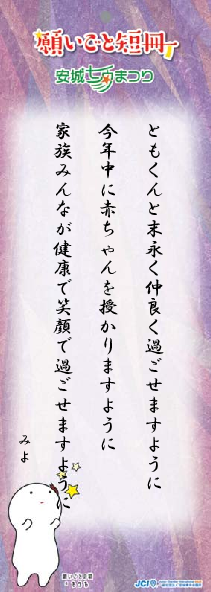 願いごと短冊
安城七夕まつり
ともくんと末永く仲良く過ごせますように
今年中に赤ちゃんを授かりますように
家族みんなが健康で笑顔で過ごせますように
みよ
願いごと短冊
JCI